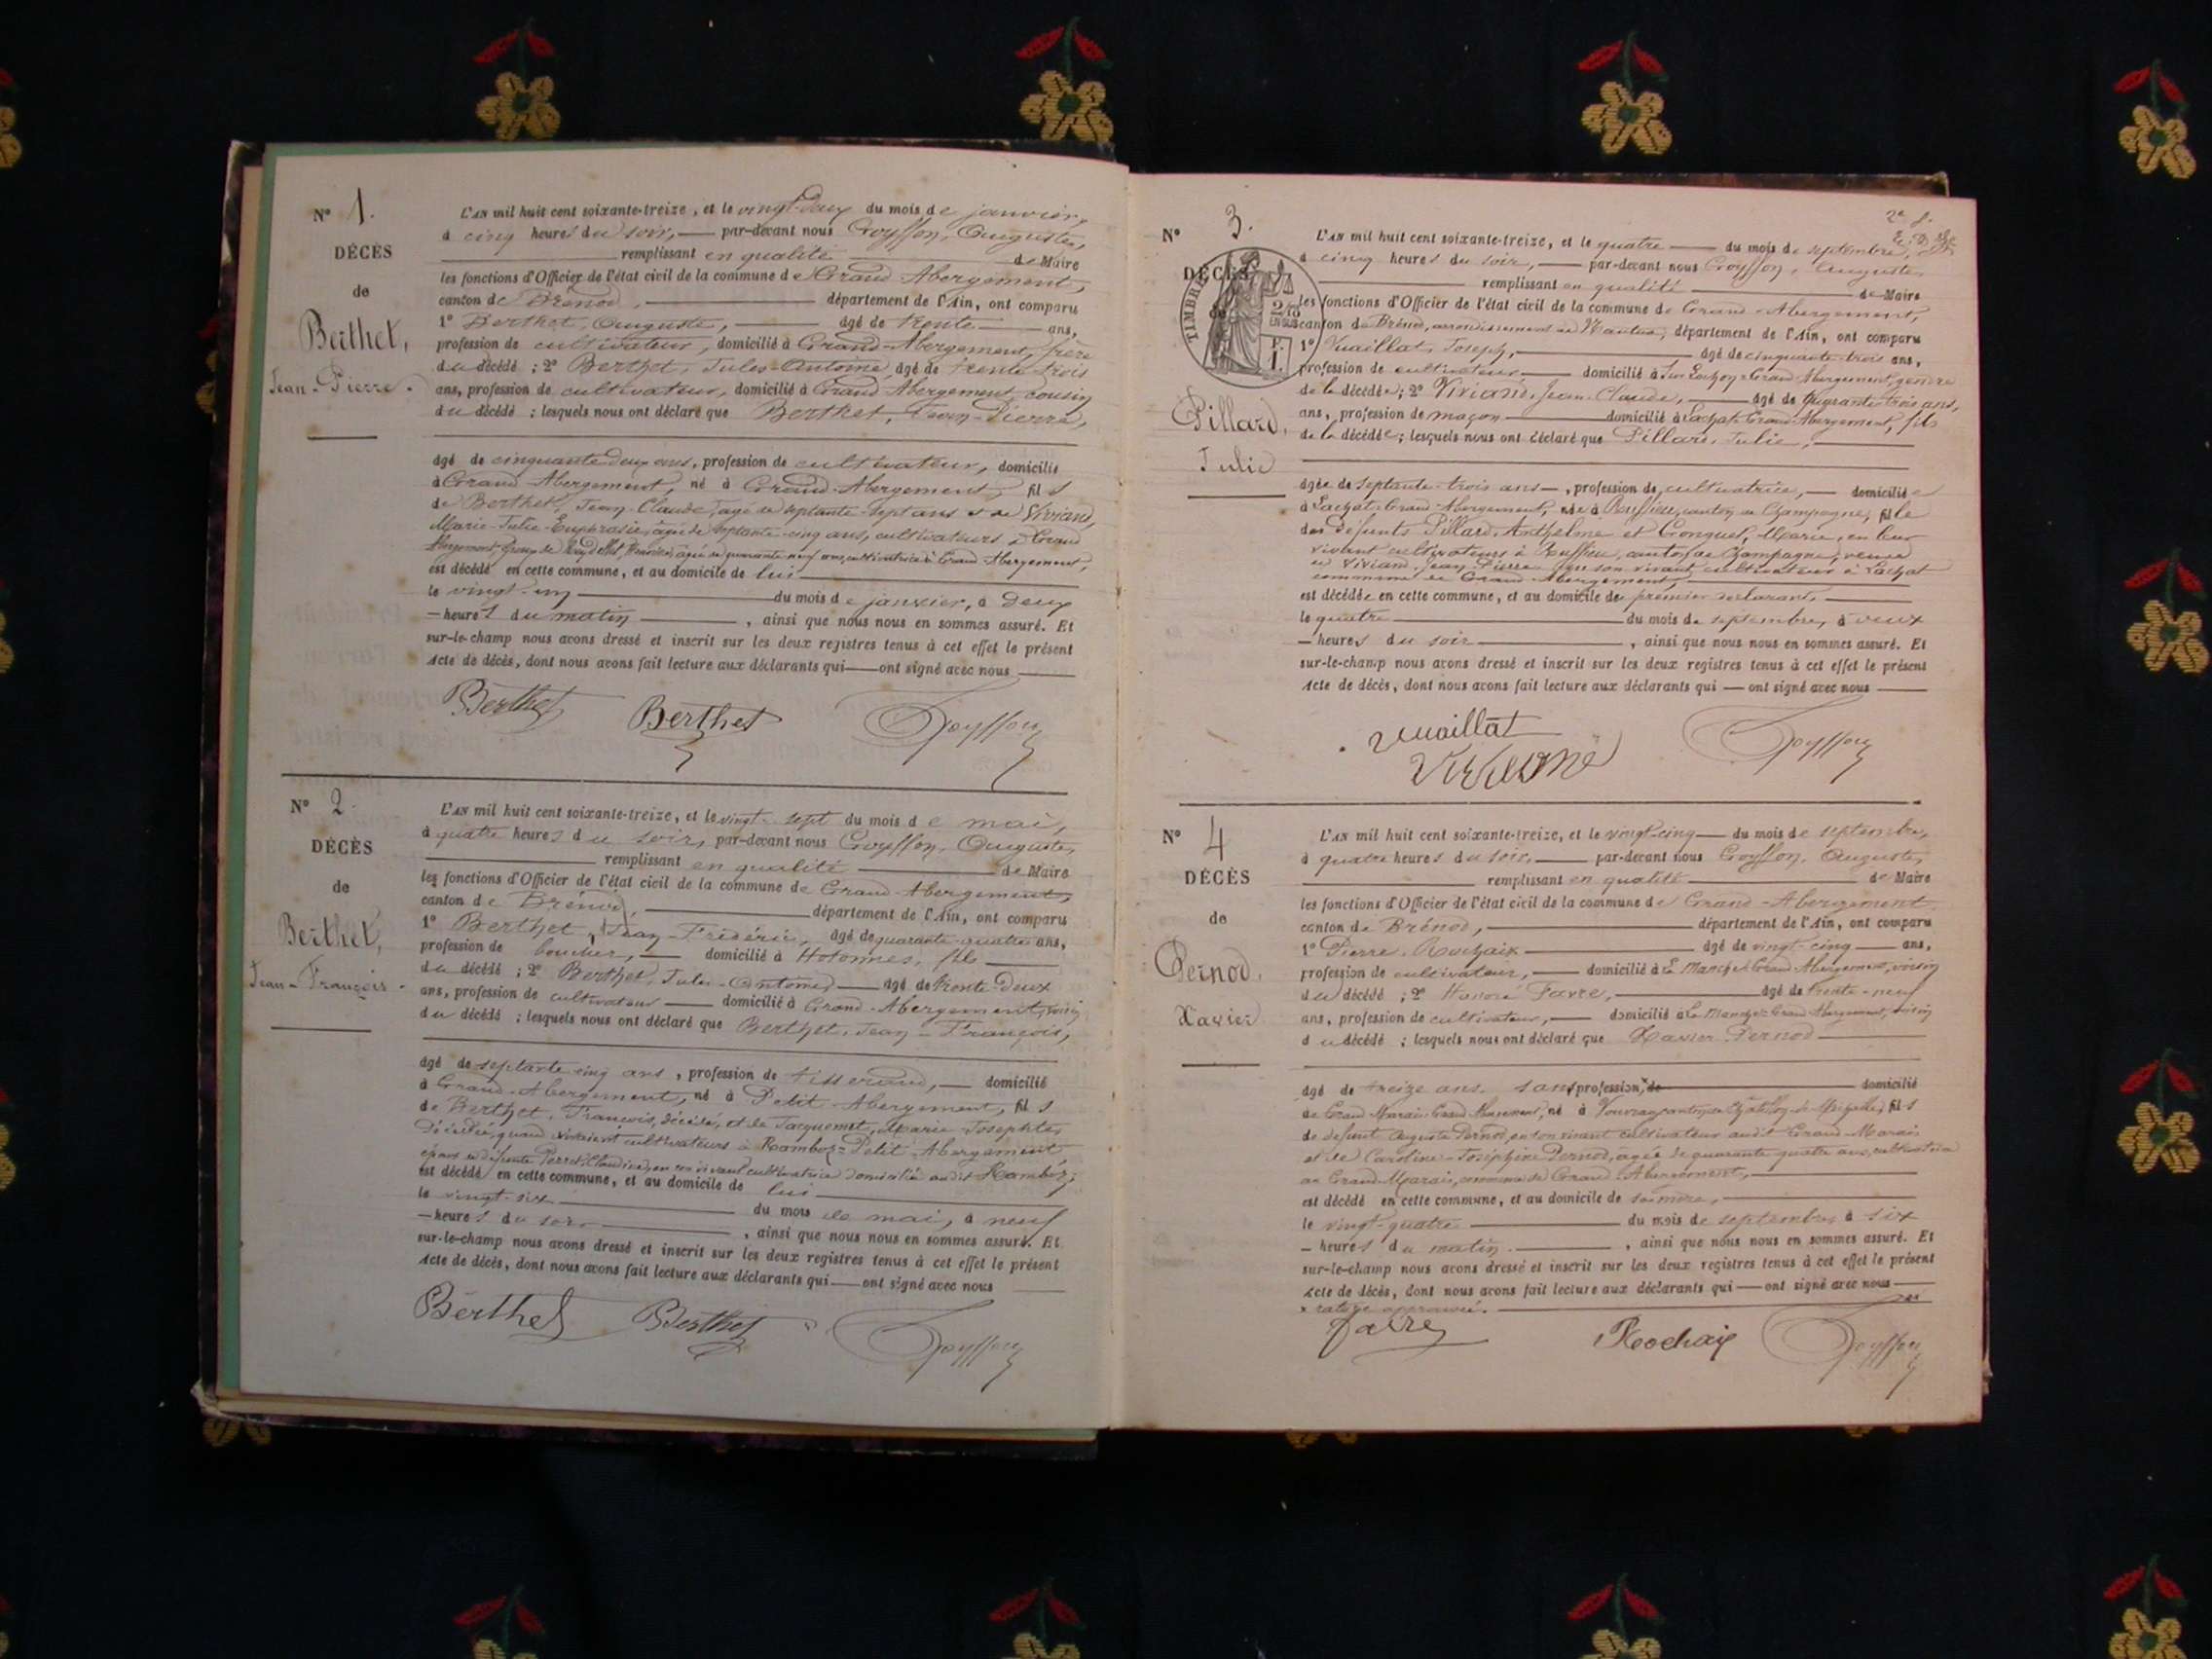 N° 1.
DÉCÈS
de
Berthet,
Jean-Pierre.
L'AN mil huit cent soixante-treize, et le vingt-deux du mois de janvier,
à cinq heures du soir, par-devant nous Goyffon, Auguste,
remplissant en qualité de Maire
les fonctions d'Officier de l'état civil de la commune de Grand-Abergement,
canton de Brénod, département de l'Ain, ont comparu
1° Berthet, Auguste, âgé de trente ans,
profession de cultivateur, domicilié à Grand-Abergement, frère
du décédé ; 2° Berthet, Jules-Antoine, âgé de trente-trois
ans, profession de cultivateur, domicilié à Grand-Abergement, cousin
du décédé ; lesquels nous ont déclaré que Berthet, Jean-Pierre,
âgé de cinquante-deux ans, profession de cultivateur, domicilié
à Grand-Abergement, né à Grand-Abergement, fils
de Berthet, Jean-Claude, âgé de septante-sept ans et de Viviand,
Marie-Julie-Euphrasie, âgée de septante-cinq ans, cultivateurs à Grand
Abergement, époux de âgée de quarante neuf ans, cultivatrice à Grand-Abergement,
est décédé en cette commune, et au domicile de lui
le vingt-un du mois de janvier, à deux
heures du matin, ainsi que nous nous en sommes assuré. Et
sur-le-champ nous avons dressé et inscrit sur les deux registres tenus à cet effet le présent
Acte de décès, dont nous avons fait lecture aux déclarants qui ont signé avec nous
Berthet Berthet Goyffon
N° 2.
DÉCÈS
de
Berthet,
Jean-François.
L'AN mil huit cent soixante-treize, et le vingt-sept du mois de mai,
à quatre heures du soir, par-devant nous Goyffon, Auguste,
remplissant en qualité de Maire
les fonctions d'Officier de l'état civil de la commune de Grand-Abergement,
canton de Brénod, département de l'Ain, ont comparu
1° Berthet, Jean-Frédéric, âgé de quarante-quatre ans,
profession de boucher, domicilié à Hotonnes, fils
du décédé ; 2° Berthet, Jules-Antoine, âgé de trente-deux
ans, profession de cultivateur domicilié à Grand-Abergement, voisin
du décédé ; lesquels nous ont déclaré que Berthet, Jean-François,
âgé de septante cinq ans, profession de tisserand, domicilié
à Grand-Abergement, né à Petit-Abergement, fils
de Berthet, François, décédé, et de Jacquemet, Marie-Josephte,
Décédée, quand vivaient cultivateurs à Ramboz-Petit-Abergement
époux de défunte Perret, Claudine, en son vivant cultivatrice domiciliée audit Ramboz,
est décédé en cette commune, et au domicile de lui
le vingt-six du mois de mai, à neuf
heures du soir, ainsi que nous nous en sommes assuré. Et
sur-le-champ nous avons dressé et inscrit sur les deux registres tenus à cet effet le présent
Acte de décès, dont nous avons fait lecture aux déclarants qui ont signé avec nous
Berthet Berthet Goyffon
2e f.
N° 3.
DÉCÈS
de
TIMBRE
Pillard,
Julie
L'AN mil huit cent soixante-treize, et le quatre du mois de septembre,
à cinq heures du soir, par-devant nous Goyffon, Auguste,
remplissant en qualité de Maire
les fonctions d'Officier de l'état civil de la commune de Grand-Abergement,
canton de Brénod, arrondissement de Nantua, département de l'Ain, ont comparu
1° Vuaillat, Joseph, âgé de cinquante-trois ans,
profession de cultivateur domicilié à Grand-Abergement, gendre
de la décédée ; 2° Viviand, Jean-Claude, âgé de quarante-trois ans,
ans, profession de maçon domicilié à Lachat-Grand-Abergement, fils
de la décédée ; lesquels nous ont déclaré que Pillard, Julie,
âgée de septante-trois ans, profession de cultivatrice, domiciliée
à Lachat-Grand-Abergement, née à Ruffieu, canton de Champagne, fille
des défunts Pillard, Anthelme et Gonguet, Marie, en leur
vivant cultivateurs à Ruffieu, canton de Champagne, veuve
de Viviand, Jean-Pierre en son vivant cultivateur à Lachat
commune de Grand-Abergement,
est décédée en cette commune, et au domicile du premier déclarant,
le quatre du mois de septembre, à deux
heures du soir, ainsi que nous nous en sommes assuré. Et
sur-le-champ nous avons dressé et inscrit sur les deux registres tenus à cet effet le présent
Acte de décès, dont nous avons fait lecture aux déclarants qui ont signé avec nous
Vuaillat Goyffon
N° 4
DÉCÈS
de
Pernod,
Xavier
L'AN mil huit cent soixante-treize, et le vingt-cinq du mois de septembre,
à quatre heures du soir, par-devant nous Goyffon, Auguste,
remplissant en qualité de Maire
les fonctions d'Officier de l'état civil de la commune de Grand-Abergement
canton de Brénod, département de l'Ain, ont comparu
1° Pierre Rochaix âgé de vingt-cinq ans,
profession de cultivateur, domicilié à Grand-Abergement, voisin
du décédé ; 2° Honoré Favre, âgé de trente-neuf
ans, profession de cultivateur, domicilié à Grand-Abergement, voisin
du décédé ; lesquels nous ont déclaré que Xavier Pernod
âgé de treize ans, sans profession, de domicilié
de Grand-Marais Grand-Abergement, né à Vouvray canton de Châtillon-de-Michaille, fils
de défunt Auguste Pernod, en son vivant cultivateur audit Grand-Marais
et de Caroline-Joséphine Pernod, âgée de quarante-quatre ans, cultivatrice
au Grand-Marais, commune de Grand-Abergement,
est décédé en cette commune, et au domicile de sa mère,
le vingt-quatre du mois de septembre à six
heures du matin, ainsi que nous nous en sommes assuré. Et
sur-le-champ nous avons dressé et inscrit sur les deux registres tenus à cet effet le présent
Acte de décès, dont nous avons fait lecture aux déclarants qui ont signé avec nous
rature approuvée.
Favre Rochaix Goyffon